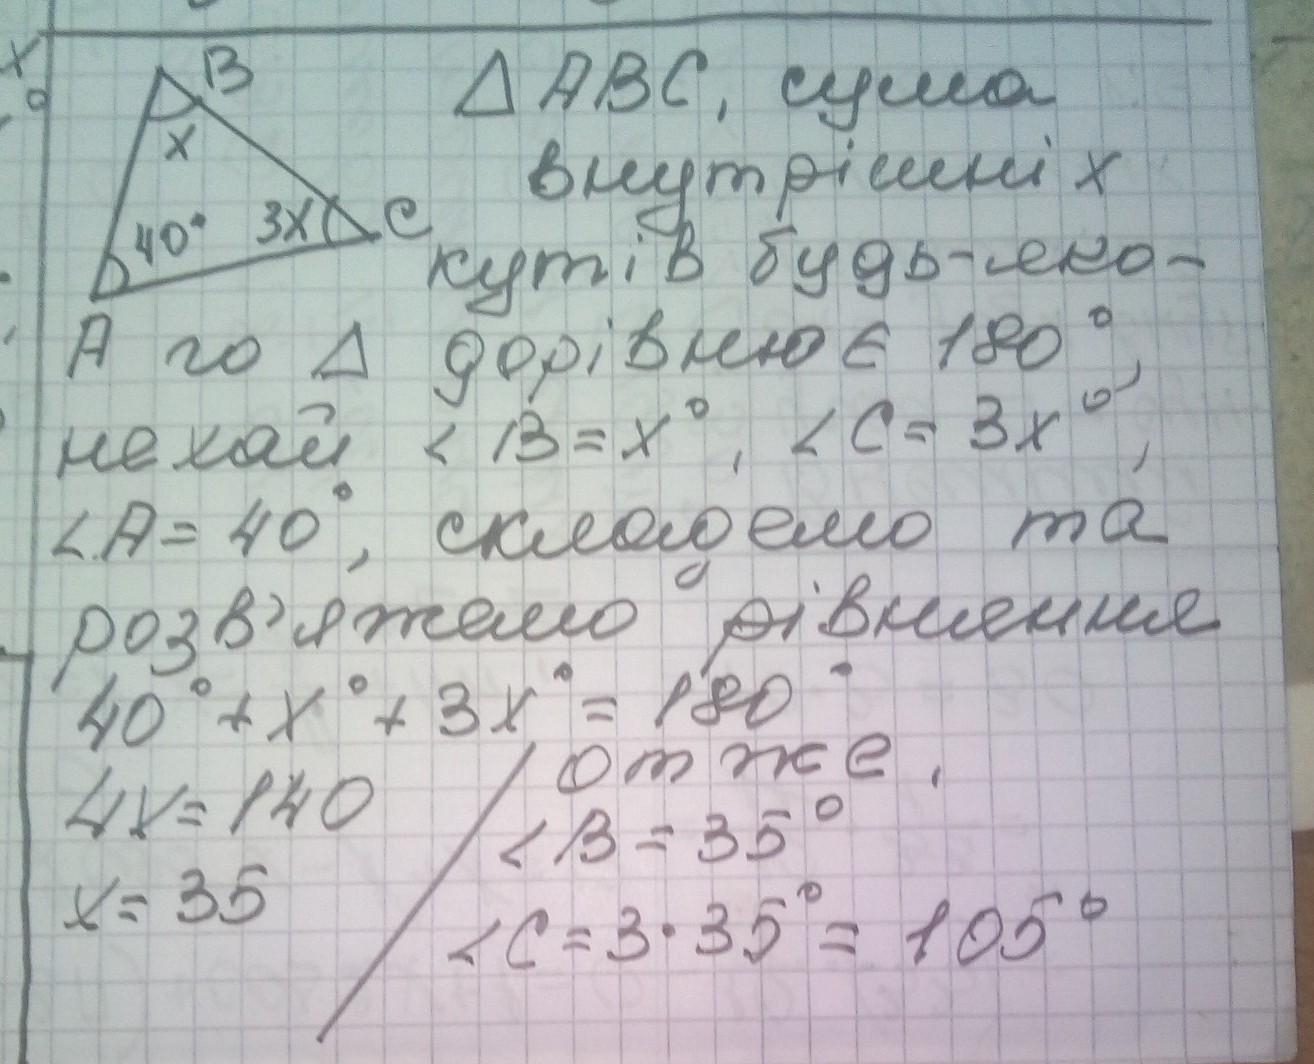 B
x
40° 3x C
△ ABC, сума
внутрішніх
кутів будь-яко-
A го △ дорівнює 180°,
нехай <B=x°, <C=3x°,
<A=40°, складемо та
розв'яжемо рівняння
40°+x°+3x°=180°
4x=140
x=35
Отже,
<B=35°
<C=3·35°=105°